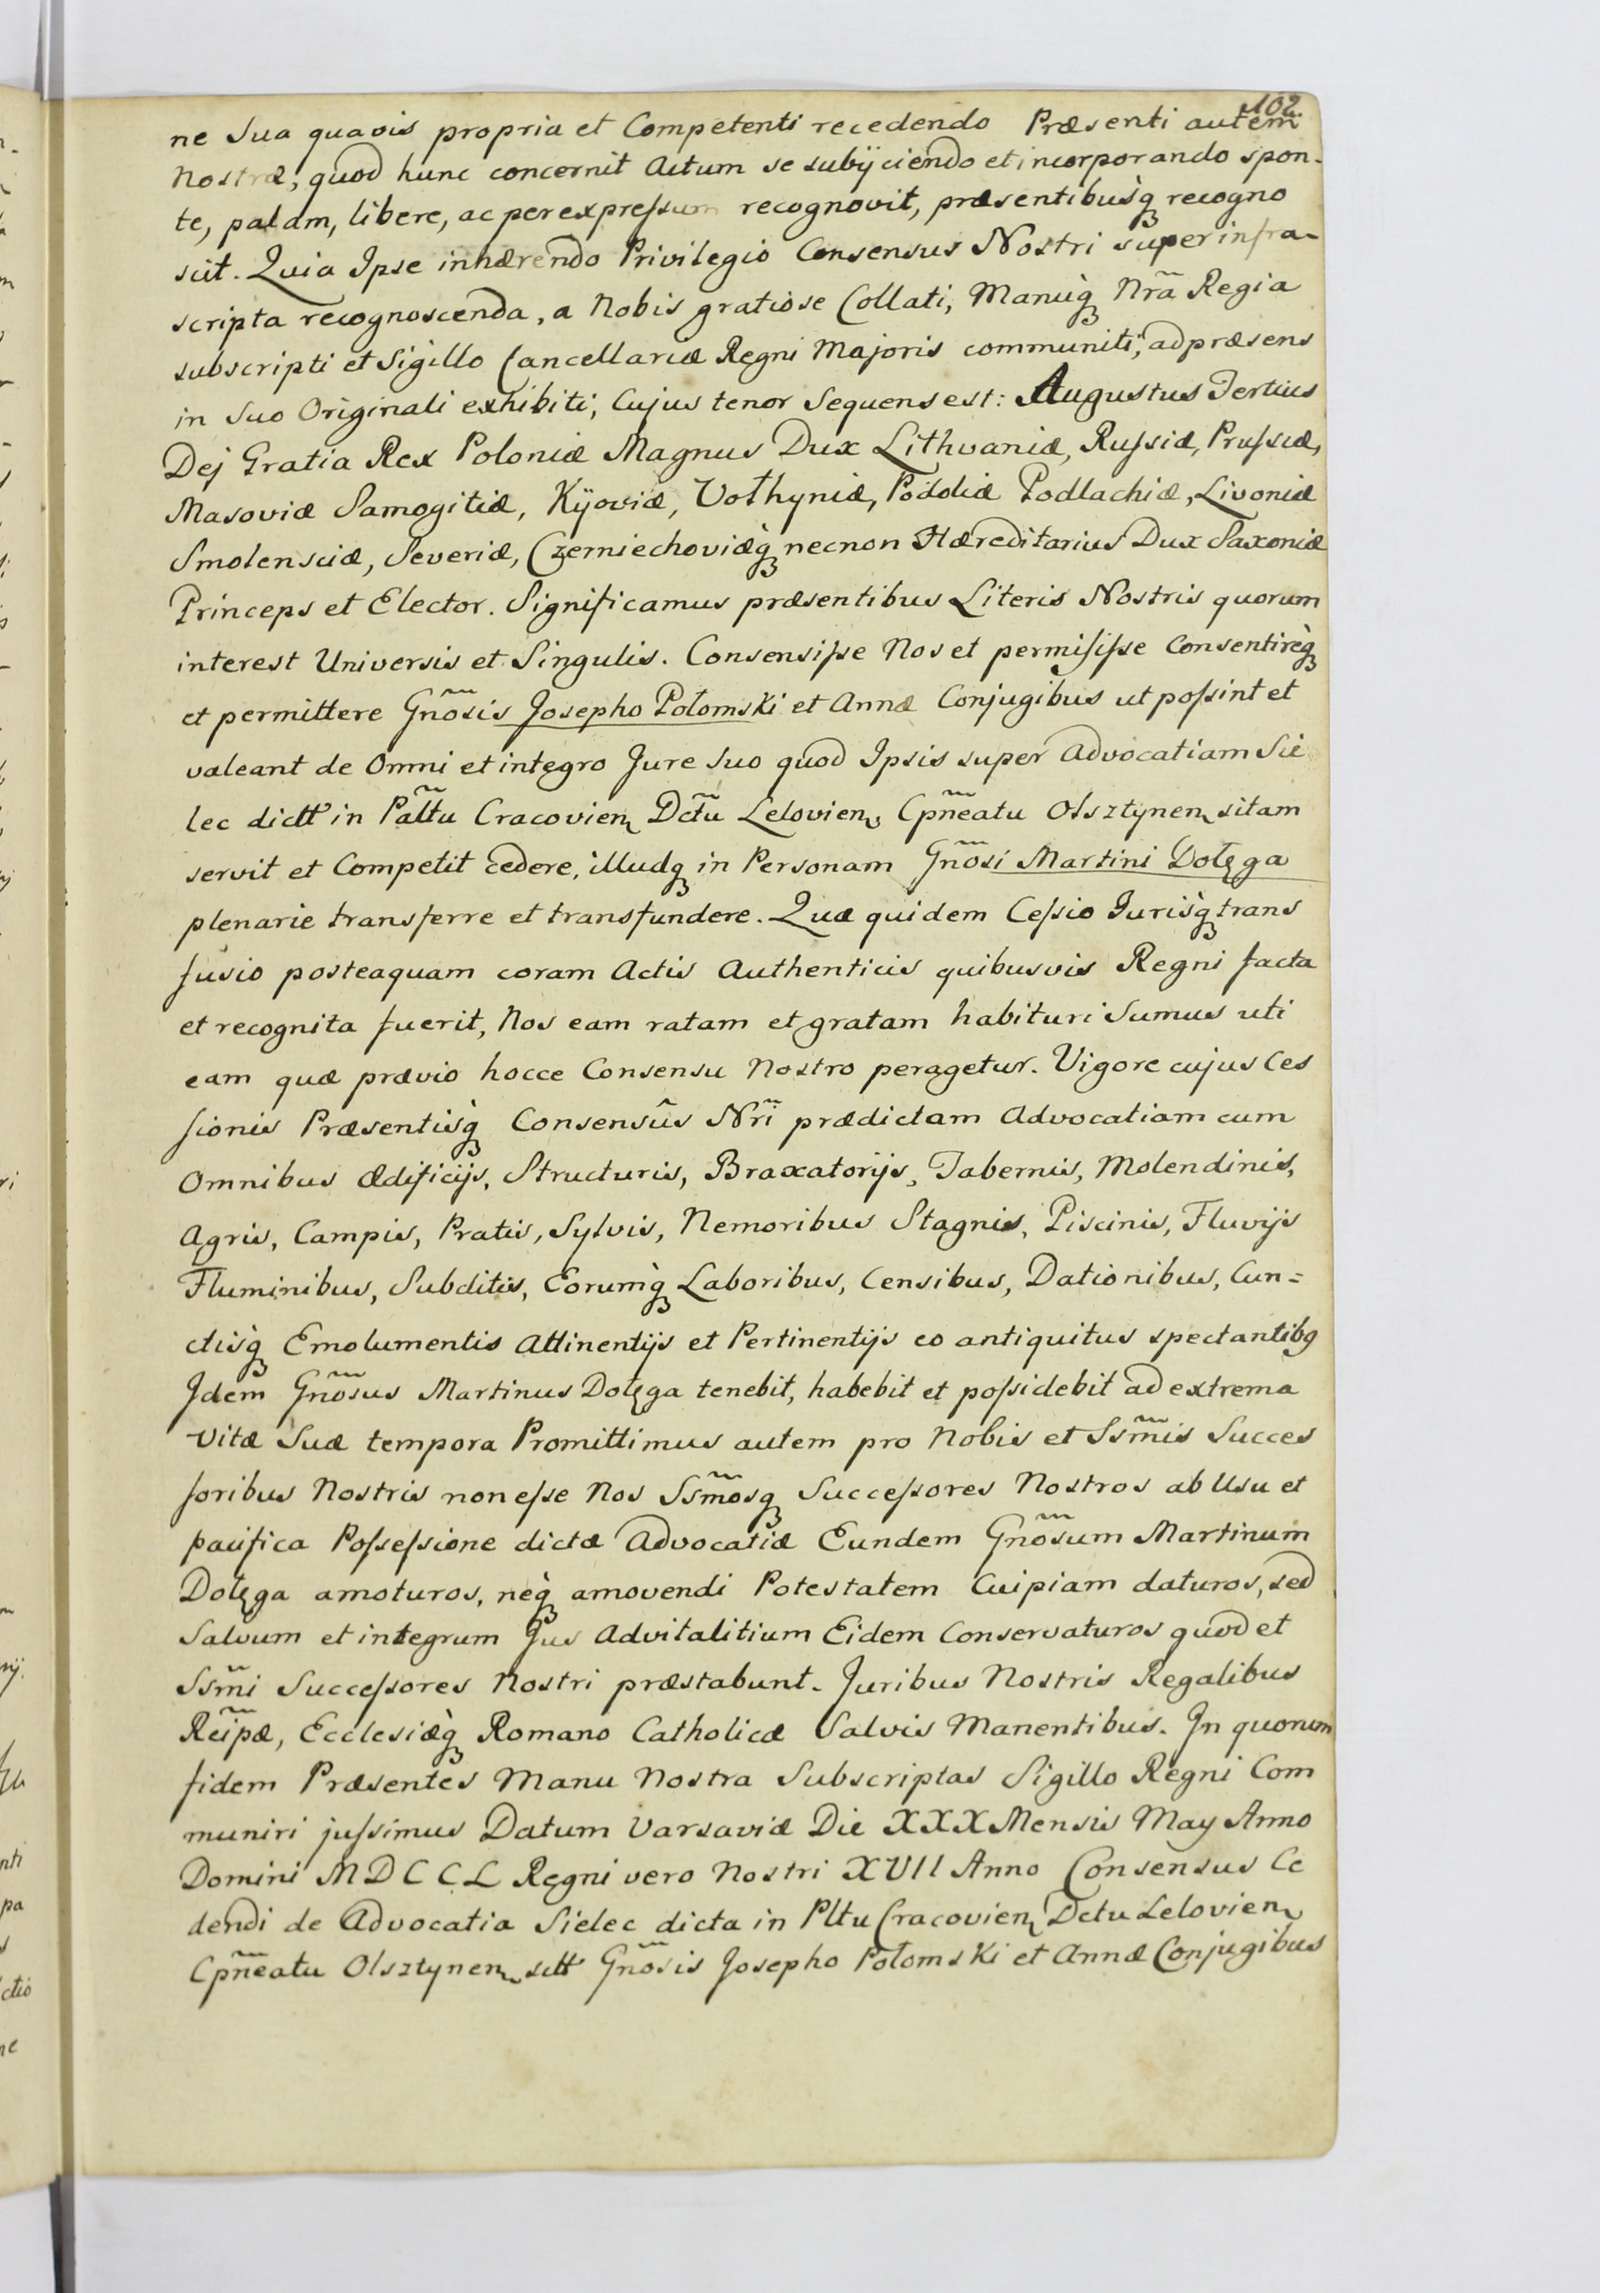 102
ne Sua quavis propria et Competenti recedendo Præsenti autem
Nostræ, quod hunc concernit Actum se subijciendo et incorporando spon-
te, palam, libere, ac per expreſsum recognovit, præsentibusq́ꝫ recogno
scit. Quia Ipse inhærendo Privilegio Consensus Nostri super infra-
scripta recognoscenda, a Nobis gratiose Collati, Manuq́ꝫ Nr̃a Regia
subscripti et Sigillo Cancellariæ Regni Majoris communiti, ad præsens
in Suo Originali exhibiti, Cujus tenor Sequens est: Augustus Tertius
Dej Gratia Rex Poloniæ Magnus Dux Lithvaniæ, Ruſsiæ, Pruſsiæ,
Masoviæ Samogitiæ, Kÿoviæ, Vołhyniæ, Podoliæ Podlachiæ, Livoniæ
Smolensciæ, Severiæ, Czerniechoviæq́ꝫ necnon Hæreditarius Dux Saxoniæ
Princeps et Elector. Significamus præsentibus Literis Nostris quorum
interest Universis et Singulis. Consensiſse Nos et permiſiſse Consentireq́ꝫ
et permittere Gnõsis Josepho Połomski et Annæ Conjugibus ut poſsint et
valeant de Omni et integro Jure Suo quod Ipsis super Advocatiam Sie
lec dictt in Pałtũ Cracovien Dctũ Lelovien, Cpñeatu Olsztynen sitam
servit et Competit cedere, illudqꝫ in Personam Gnõsi Martini Dołęga
plenarie transferre et transfundere. Quæ quidem Ceſsio Jurisq́ꝫ trans
fusio posteaquam coram Actis Authenticis quibusvis Regni facta
et recognita fuerit, Nos eam ratam et gratam habituri Sumus uti
eam quæ prævio hocce Consensu Nostro peragetur. Vigore cujus Ces
sionis Præsentisq́ꝫ Consensûs Nr̃i prædictam Advocatiam cum
Omnibus Ædificijs, Structuris, Braxatorijs, Tabernis, Molendinis,
Agris, Campis, Pratis, Sylvis, Nemoribus Stagnis, Piscinis, Fluvijs
Fluminibus, Subditis, Eorumq́ꝫ Laboribus, Censibus, Dationibus, Cun=
ctisq́ꝫ Emolumentis Attinentijs et Pertinentijs eo antiquitus spectantibꝫ
Idem Gnõsus Martinus Dołęga tenebit, habebit et poſsidebit ad extrema
Vitæ Suæ tempora Promittimus autem pro Nobis et Ssm̃is Succes
soribus Nostris non eſse Nos Ssm̃osqꝫ Succeſsores Nostros ab Usu et
pacifica Poſseſsione dictæ Advocatiæ Eundem Gnõsum Martinum
Dołęga amoturos, neq́ꝫ amovendi Potestatem Cuipiam daturos, sed
Salvum et integrum Jus Advitalitium Eidem Conservaturos quod et
Ssm̃i Succeſsores Nostri præstabunt. Juribus Nostris Regalibus
Reip̃æ, Ecclesiæq́ꝫ Romano Catholicæ Salvis Manentibus. In quorum
fidem Præsentes Manu Nostra Subscriptas Sigillo Regni Com
muniri juſsimus Datum Varsaviæ Die XXX Mensis May Anno
Domini MDCCL Regni vero Nostri XVII Anno Consensus Ce
dendi de Advocatia Sielec dicta in Płtu Cracovien Dctu Lelovien
Cpñeatu Olsztynen sitt Gnõsis Josepho Połomski et Annæ Conjugibus